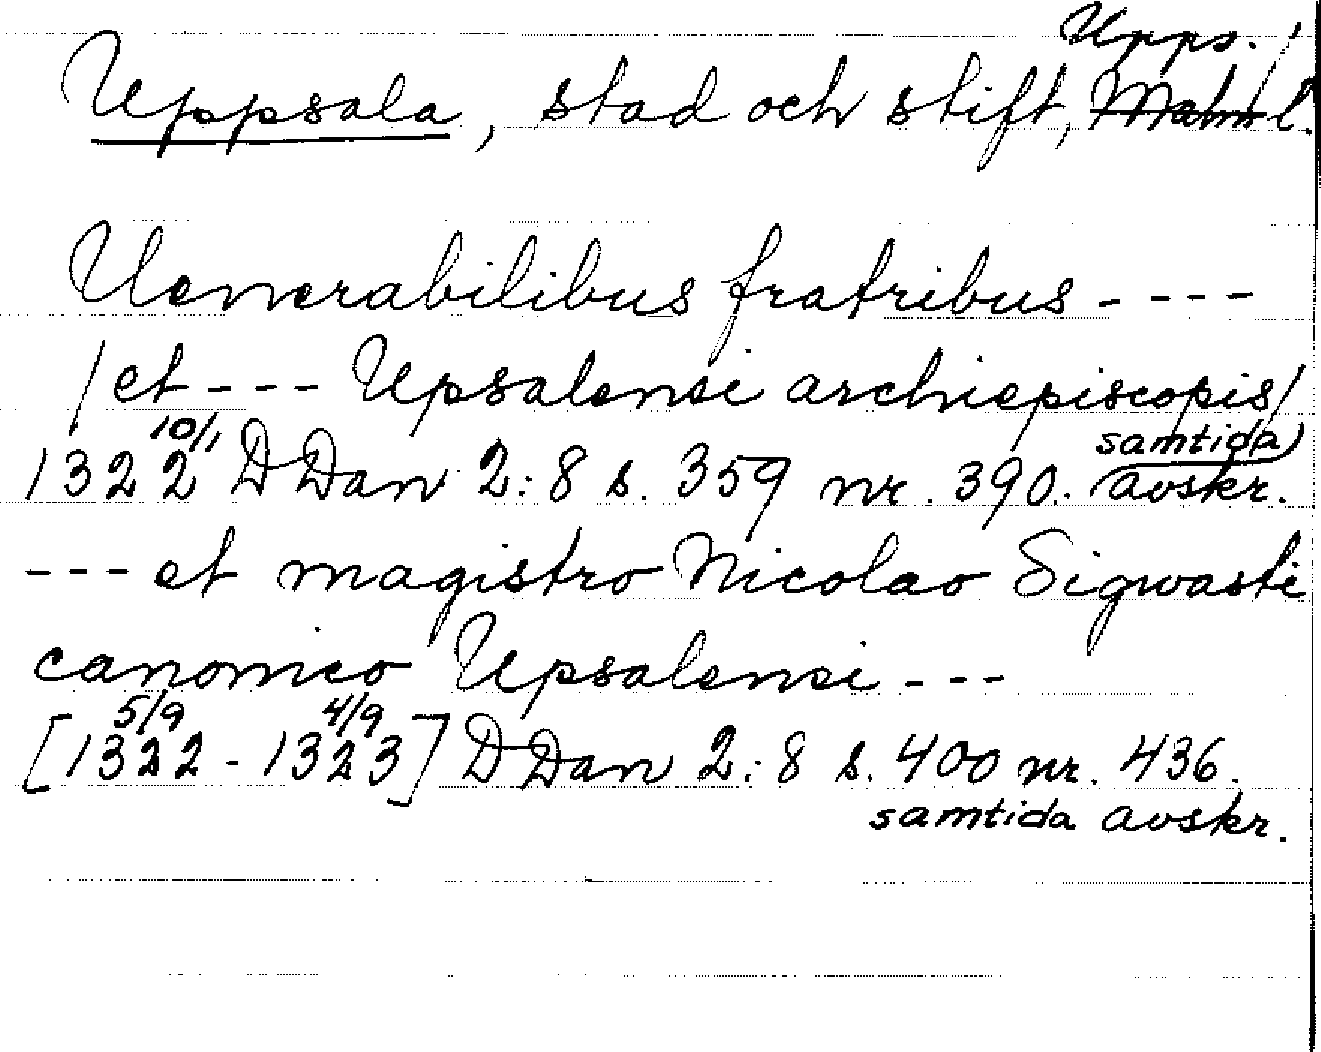 Upps.
Uppsala, stad och stift, Malm l.
Uenerabilibus fratribus ----
/et --- Upsalensi archiepiscopis/
10/1
samtida
1322 DDan 2:8 s. 359 nr. 390. avskr.
--- et magistro Nicolao Sigwasti
canonico Upsalensi ---
5/9 4/9
[1322 - 1323] DDan 2:8 s. 400 nr. 436.
samtida avskr.